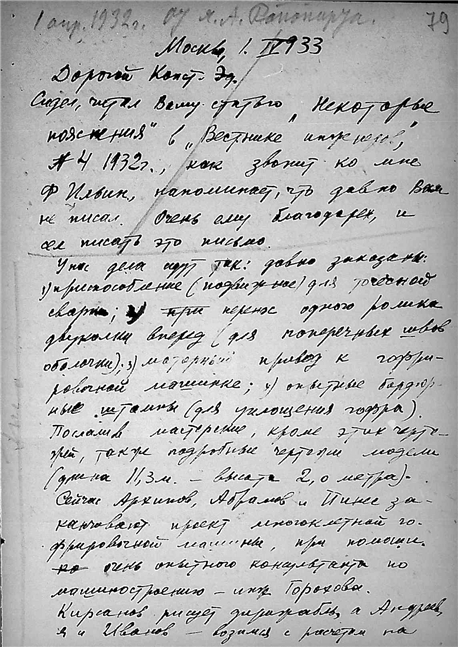 1 апр. 1932г. От Я. А. Рапопорта. 79
Москва, 1. IV 933
Дорогой Конст. Эд.
Сидел, читал Вашу статью „Некоторые
пояснения" в „Вестнике инженеров",
№ 4 1932г., как звонит ко мне
Ф Ильин, напоминает, что давно Вам
не писал. Очень ему благодарен, и
сел писать это письмо.
У нас дела идут так: давно заказаны:
1) приспособление (подвижное) для точечной
сварки; 2) при перенос одного ролика
двуколки вперед (для поперечных швов
оболочки); 3) моторный привод к гофри-
ровочной машинке; 4) опытные бордюр-
ные штампы (для уплощения гофра).
Послали мастерские, кроме этих черте-
жей, также подробные чертежи модели
(длина 11,3 м. – высота 2,0 метра).
Сейчас Архипов, Абрамов и Пинес за-
канчивают проект многоклетной го-
фрировочной машины, при помощи
очень опытного консультанта по
машиностроению – инж Горохова.
Кирсанов рисует дирижабль, а Андреев,
я и Иванов – возимся с расчетом на